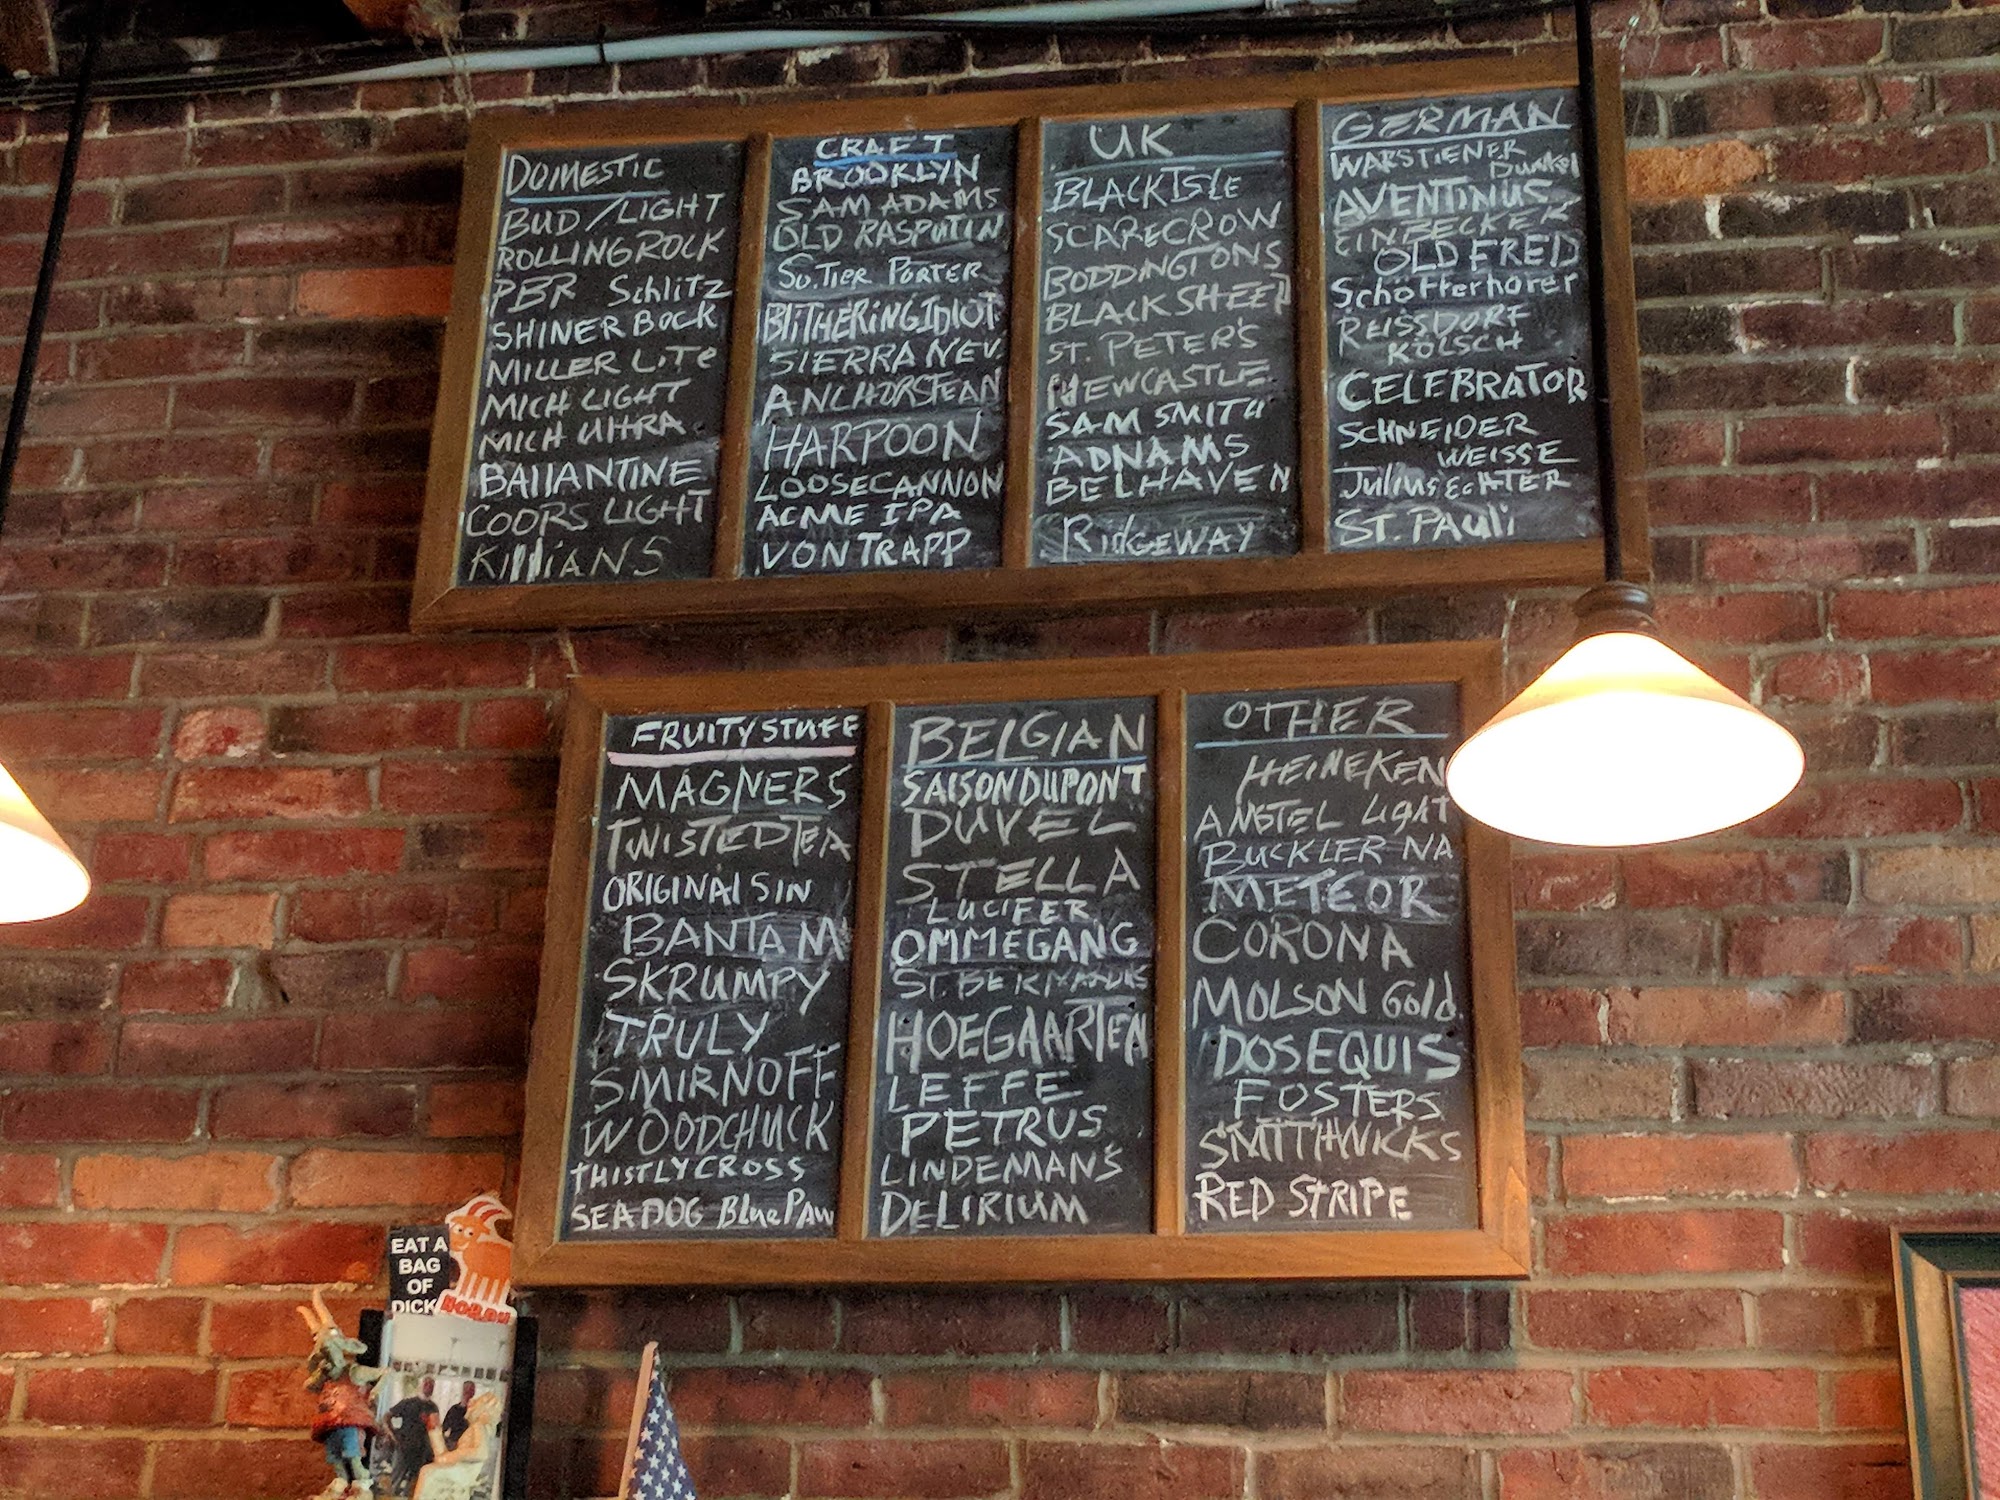 DOMESTIC
BUD/LIGHT
ROLLINGROCK
PBR Schlitz
SHINER BOCK
MILLER LiTe
MICH LIGHT
MICH UltRA
BAllANTINE
COORS LIGHT
KilliANS
CRAFT
BROOKLYN
SAM ADAMS
OLD RASPUTIN
SO.TIER PORTER
BLITHERiNG IDIOT
SIERRA NEV.
ANCHORSTEAN
HARPOON
LOOSECANNON
ACME IPA
VON TRAPP
UK
BLACK ISLE
SCARECROW
BODDINGTONS
BLACK SHEEP
ST. PETER'S
NEWCASTLE
SAM SMITH
ADNAMS
BELHAVEN
RidGEWAY
GERMAN
WARSTIENER
Dunkel
AVENTINUS
EINBECKER
OLD FRED
Schofferhofer
REISSDORF
KOLSCH
CELEBRATOR
SCHNEIDER
WEISSE
Julius EcHTER
ST. PAUli
FRUITY STUFF
MAGNERS
TWISTED TEA
ORIGINAl SIN
BANTAM
SKRUMPY
TRULY
SMIRNOFF
WOODCHUCK
THISTLY CROSS
SEADOG Blue Paw
BELGIAN
SAISON DUPONT
DUVEL
STELLA
LUCIFER
OMMEGANG
ST. BERNARDUS
HOEGAARTEN
LEFFE
PETRUS
LINDEMANS
DELIRIUM
OTHER
HEINEKEN
AMSTEL LIGHT
BUCKLER NA
METEOR
CORONA
MOLSON Gold
DOS EQUIS
FOSTERS
SMITTHWICKS
RED STRIPE
EAT A
BAG
OF
DICK